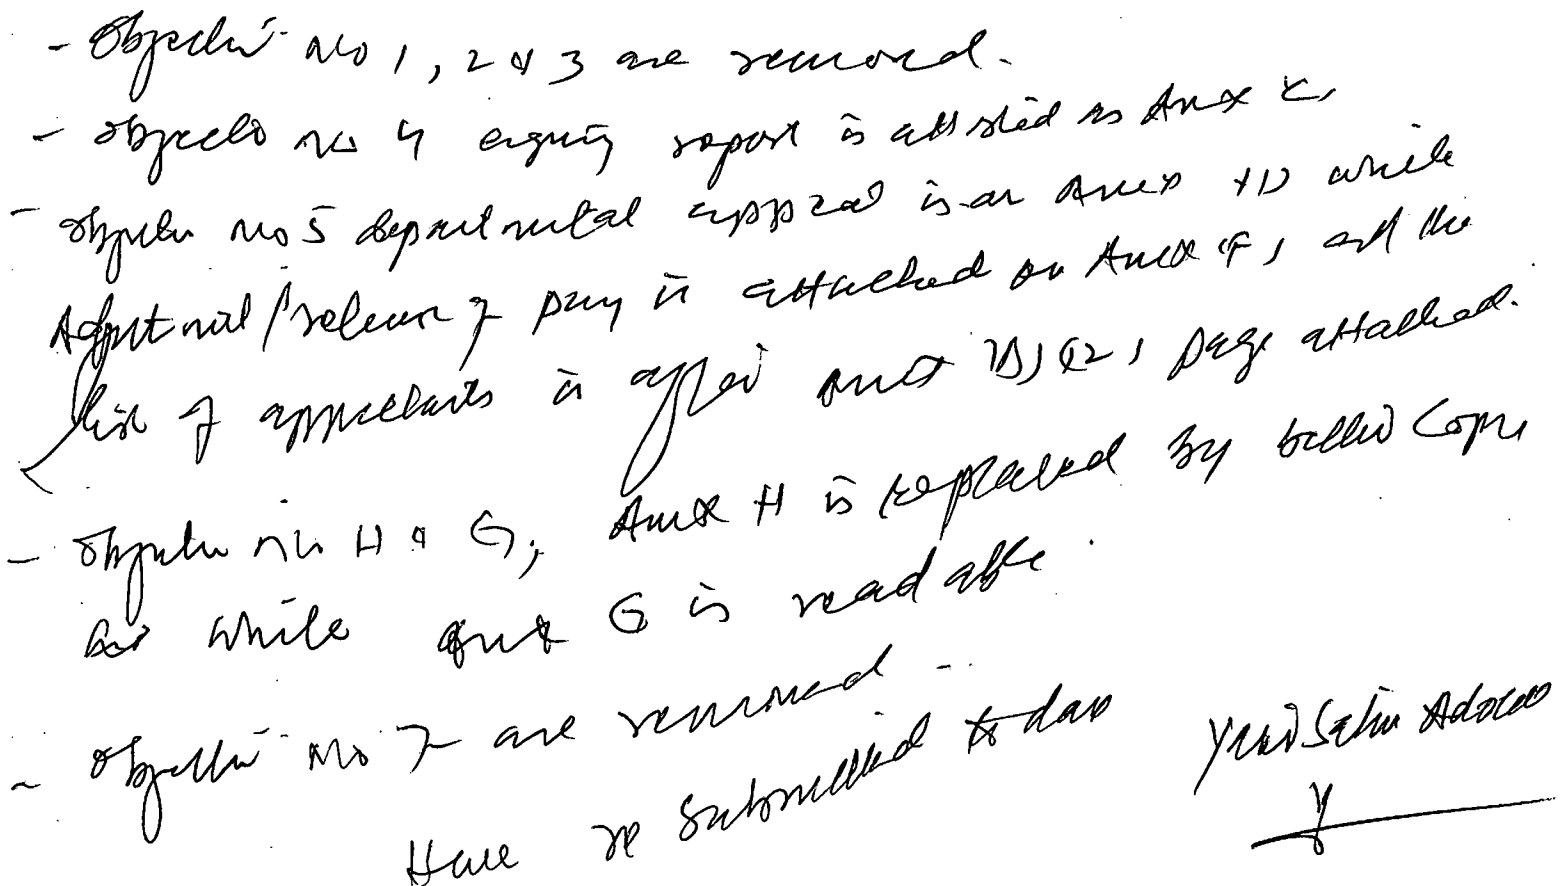 - Objection No 1, 2 & 3 are removed.
- Objection no 4 enquiry report is attached as Anex C,
- Objection No 5 departmental appeal is on Anex D while
Adjustment / release of pay is attached on Anex F, and the
list of appellants is after Anex page attached.
- Objection No H & G, Anex H is replaced by better Copy
while Anex G is readable.
- Objection No 7 are removed
Have re submitted to day